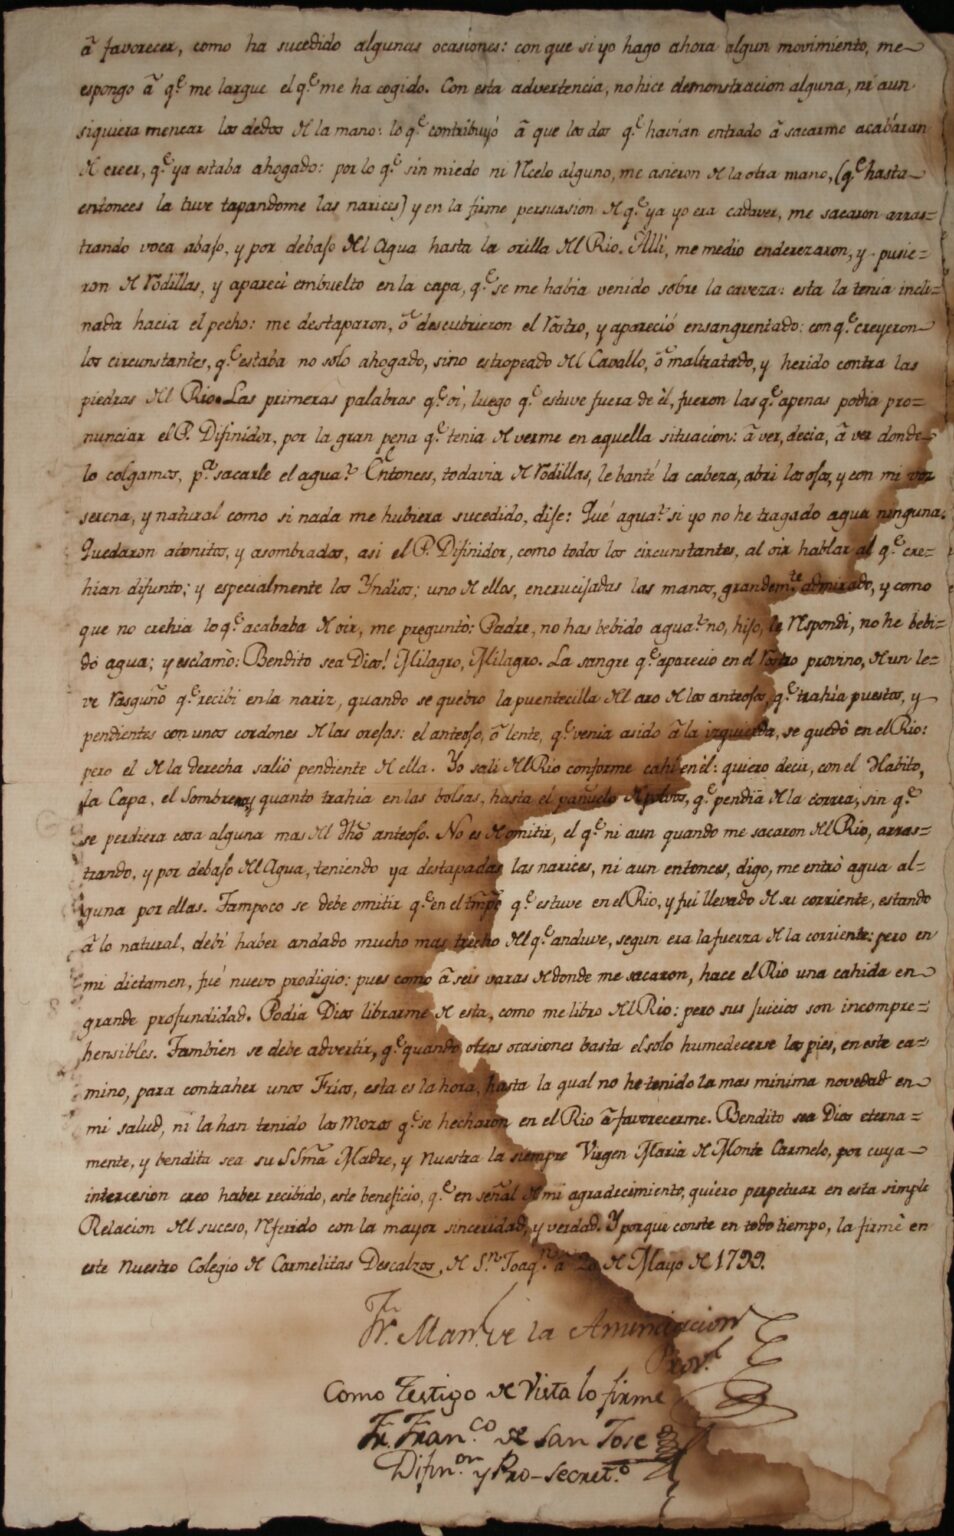 â favorecer, como ha sucedido algunas ocasiones: con que si yo hago ahora algun movimiento, me
espongo â q.e me largue el q.e me ha cogido. Con esta advertencia, no hice demonstracion alguna, ni aun
siquiera menear los dedos de la mano: lo q.e contribuyó â que los dos q.e havian entrado â sacarme acabáran
de creer, q.e ya estaba ahogado: por lo q.e sin miedo ni recelo alguno, me asieron de la otra mano, (q.e hasta
entonces la tuve tapandome las narices) y en la firme persuasion de q.e ya yo era cadaver, me sacaron arras=
trando voca abajo, y por debajo del Agua hasta la orilla del Rio. Alli, me medio enderezaron, y pusie=
ron de rodillas, y aparecì embuelto en la capa, q.e se me habia venido sobre la caveza: esta la tenia incli=
nada hacia el pecho: me destaparon, ô descubrieron el rostro, y apareció ensangrentado: con q.e creyeron
los circunstantes, q.e estaba no solo ahogado, sino estropeado del Cavallo, ô maltratado, y herido contra las
piedras del Rio. Las primeras palabras q.e oì, luego q.e estuve fuera de èl, fueron las q.e apenas podia pro=
nunciar el P. Difinidor, por la gran pena q.e tenia de verme en aquella situacion: â ver, decia, â ver donde
lo colgamos, p.a sacarle el agua? Entonces, todavia de rodillas, lebanté la cabeza, abrì los ojos, y con mi voz
serena, y natural como si nada me hubiera sucedido, dije: Qué agua? si yo no he tragado agua ninguna.
Quedaron atonitos, y asombrados, asi el P. Difinidor, como todos los circunstantes, al oir hablar al q.e cre=
hian difunto; y especialmente los Yndios; uno de ellos, encrucijadas las manos, grandem.te admirado, y como
que no crehia lo q.e acababa de oir, me preguntò: Padre, no has bebido agua? no, hijo, le respondi, no he bebi=
dó agua; y esclamò: Bendito sea Dios! Milagro, Milagro. La sangre q.e apareciò en el rostro provino, de un le=
ve rasguño q.e recibì en la nariz, quando se quebrò la puentecilla del aro de los anteojos, q.e trahia puestos, y
pendientes con unos cordones de las orejas: el anteojo, ô lente, q.e venia asido â la izquierda, se quedò en el Rio:
pero el de la derecha saliò pendiente de ella. Yo salì del Rio conforme cahì en èl: quiero decir, con el Habito,
la Capa, el Sombrero, y quanto trahia en las bolsas, hasta el pañuelo de polvos, q.e pendia de la correa, sin q.e
se perdiera cosa alguna mas del dho anteojo. No es de omitir, el q.e ni aun quando me sacaron del Rio, arras=
trando, y por debajo del Agua, teniendo ya destapadas las narices, ni aun entonces, digo, me entrò agua al=
guna por ellas. Tampoco se debe omitir q.e en el tmpo q.e estuve en el Rio, y fuì llevado de su corriente, estando
â lo natural, debì haber andado mucho mas trecho del q.e anduve, segun era la fuerza de la corriente: pero en
mi dictamen, fué nuevo prodigio: pues como â seis varas de donde me sacaron, hace el Rio una cahida en
grande profundidad. Podia Dios librarme de esta, como me libro del Rio: pero sus juicios son incompre=
hensibles. Tambien se debe advertir, q.e quando otras ocasiones basta el solo humedecerse los pies, en este ca=
mino, para contraher unos Frios, esta es la hora, hasta la qual no he tenido la mas minima novedad en
mi salud, ni la han tenido los Mozos q.e se hecharon en el Rio â favorecerme. Bendito sea Dios eterna=
mente, y bendita sea su SSma Madre, y Nuestra la siempre Virgen Maria de Monte Carmelo, por cuya
intercesion creo haber recibido, este beneficio, q.e en señal de mi agradecimiento, quiero perpetuar en esta simple
Relacion del suceso, referido con la mayor sinceridad, y verdad. Y porque conste en todo tiempo, la firmè en
este Nuestro Colegio de Carmelitas Descalzos, de S.n Joaq.n â 20 de Mayo de 1799.
Fr. Man.l de la Anunciacion
Prov.l
Como Testigo de Vista lo firme
Fr. Fran.co de San Jose
Difin.or y Pro-Secret.o